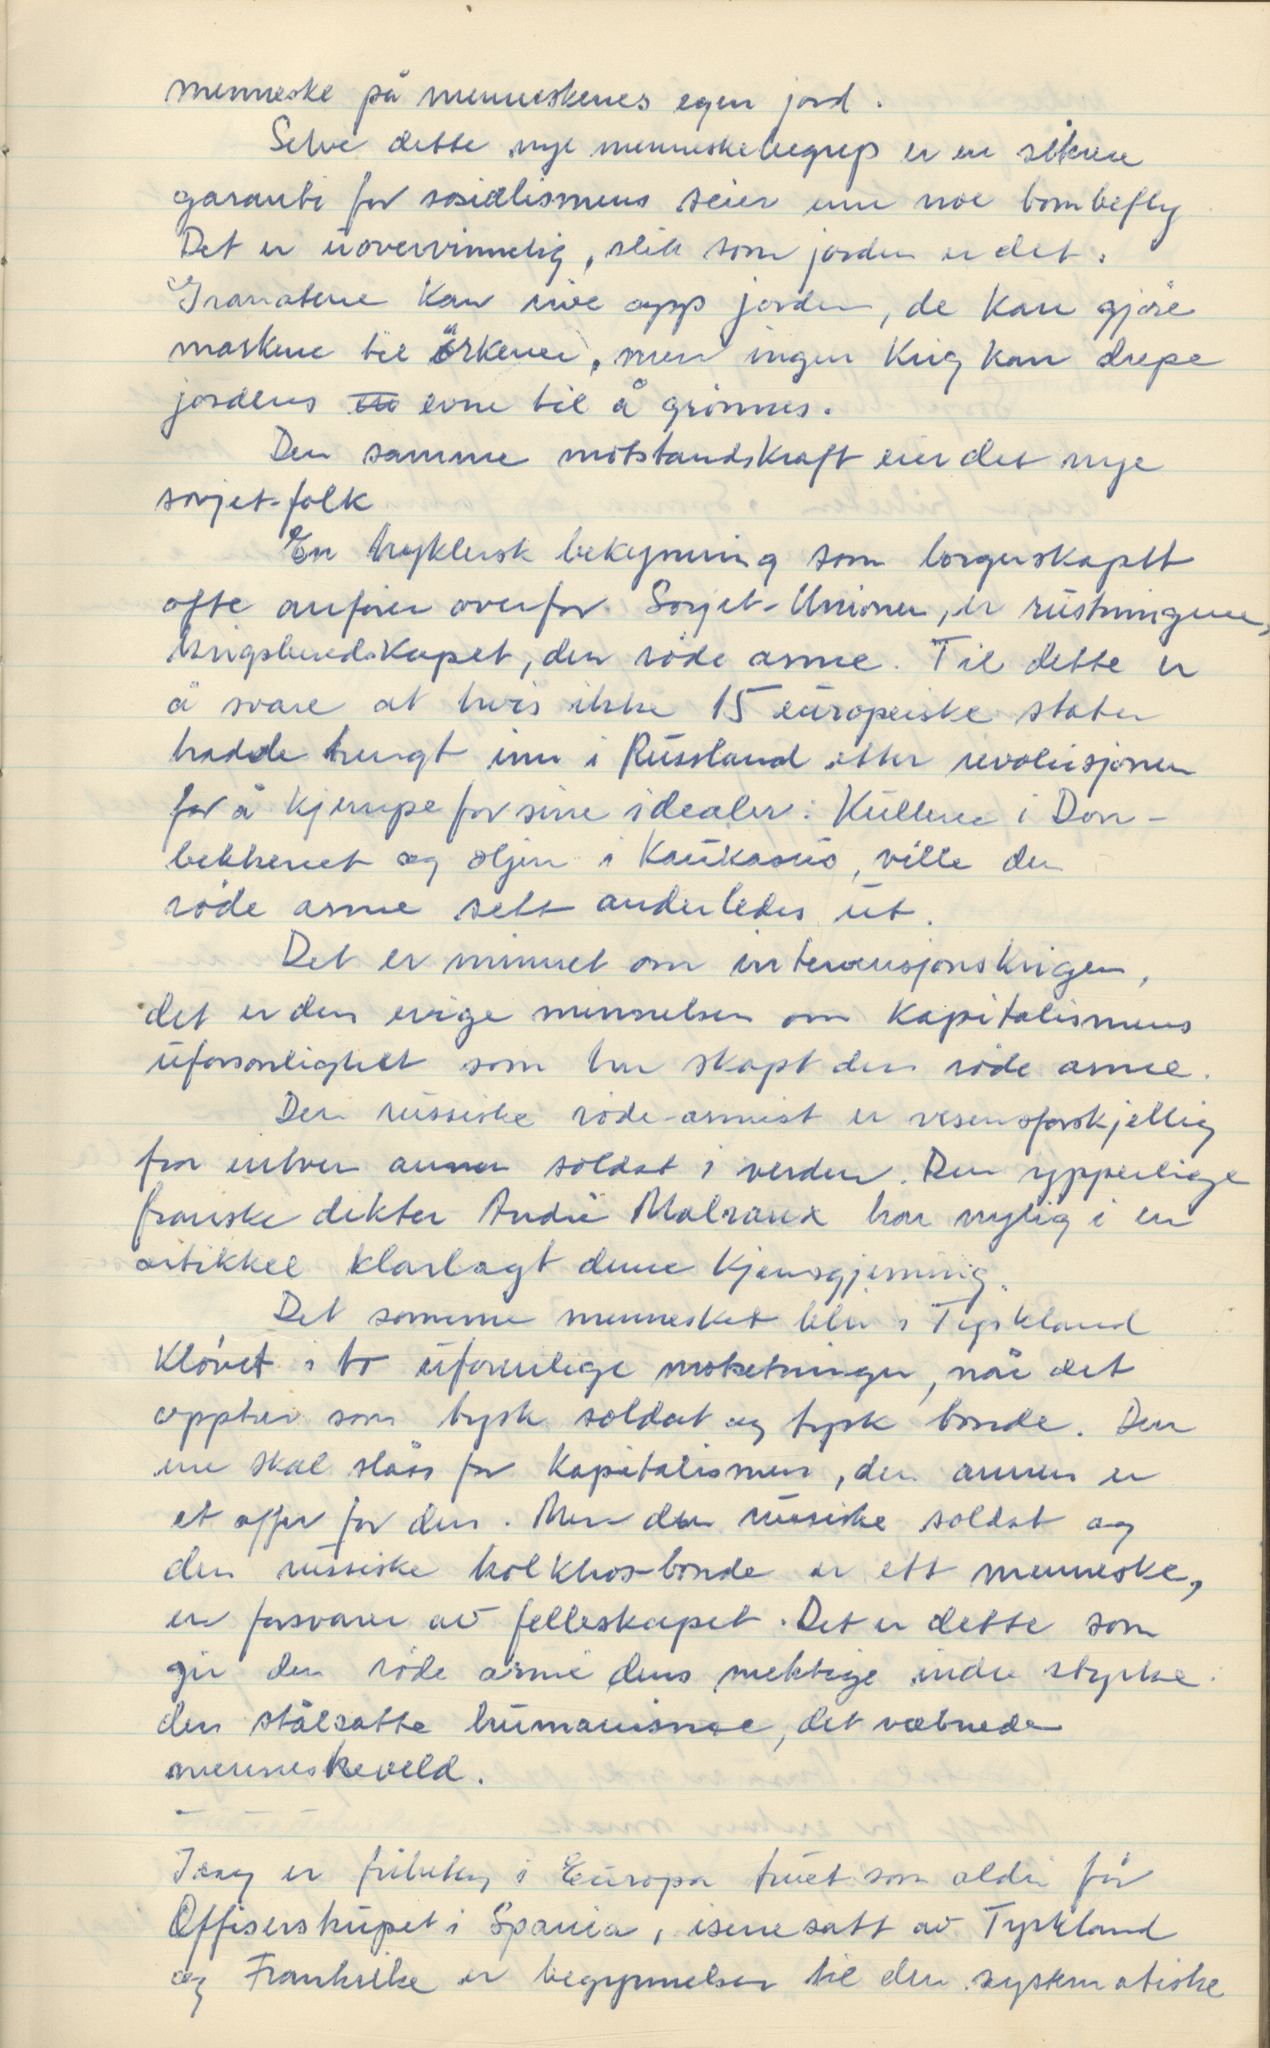 menneske på menneskenes egen jord.
Selve dette nye menneskebegrep er en sikrere
garanti for sosialismens seier enn noe bombefly
Det er uovervinnelig, slik som jorden er det.
Granatene kan rive opp jorden, de kan gjöre
markene til örkener, men ingen krig kan drepe
jordens evne til å grönnes.
Den samme motstandskraft eier det nye
sovjet-folk
En hyklersk bekymring som borgerskapet
ofte anförer overfor Sovjet-Unionen, er rustningene,
krigsberedskapet, den röde arme. Til dette er
å svare at hvis ikke 15 europeiske stater
hadde trengt inn i Russland etter revolusjonen
for å kjempe for sine idealer: Kullene i Don-
bekkenet og oljen i Kaukasus, ville den
röde arme sett anderledes ut.
Det er minnet om intervensjonskrigen,
det er den evige minnelsen om kapitalismens
uforsonlighet som har skapt den röde arme.
Den russiske röde-armist er vesensforskjellig
fra enhver annen soldat i verden. Den ypperlige
franske dikter André Malraux har nylig i en
artikkel klarlagt denne kjensgjerning.
Det samme mennesket blir i Tyskland
klövet i to uforenlige motsetninger, når det
opptrer som tysk soldat og tysk bonde. Den
ene skal slåss for kapitalismen, den annen er
et offer for den. Men den russiske soldat og
den russiske kolkhos-bonde er ett menneske,
en forsvarer av felleskapet. Det er dette som
gir den röde armé dens mektige indre styrke
den stålsatte humanisme, det væbnede
menneskeveld.
–
Idag er friheten i Europa truet som aldri för
Offiserskupet i Spania, iscenesatt av Tyskland
og Frankrike er begynnelsen til den systematiske